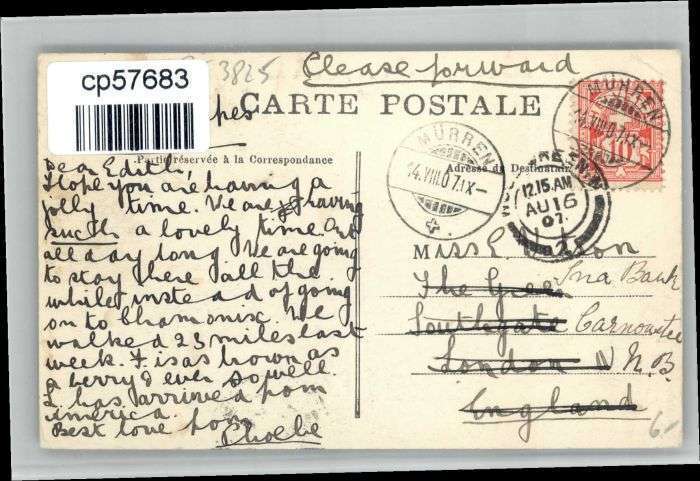 cp57683
3825
Please forward
CARTE POSTALE
Partie réservée à la Correspondance
Adresse du Destinataire
MÜRREN
14.VIII.07.IX-
MÜRREN
14.VIII.07.IX-
12.15.AM
AU 16
07
10
Dear Edith,
I hope you are having a
jolly time. We are having
such a lovely time. Out
all day long. We are going
to stay here all the
while instead of going
on to Chamonix. We
walked 23 miles last
week. F. is as brown as
a berry & ever so well.
L has arrived from
America.
Best love from
Phoebe
Miss E
The Ina Bank
Southgate Carnoustie
London N N.B.
England
6-